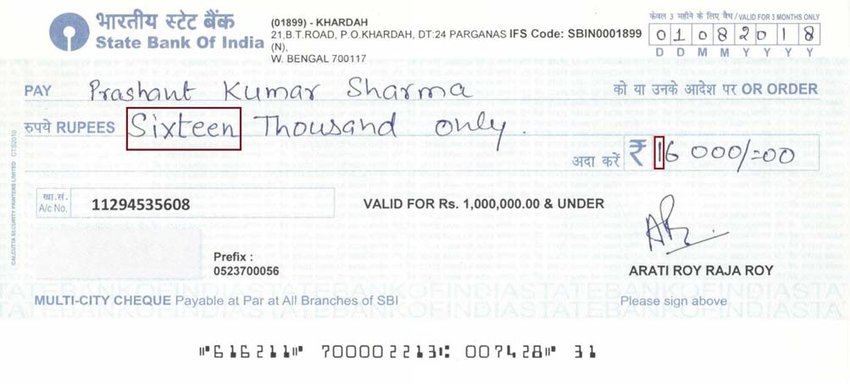 भारतीय स्टेट बैंक
State Bank Of India
(01899) - KHARDAH
21,B.T.ROAD, P.O.KHARDAH, DT:24 PARGANAS IFS Code: SBIN0001899
(N),
W. BENGAL 700117
केवल 3 महीने के लिए वैध/VALID FOR 3 MONTHS ONLY
0 1 0 8 2 0 1 8
D D M M Y Y Y Y
PAY Prashant Kumar Sharma को या उनके आदेश पर OR ORDER
रुपये RUPEES Sixteen Thousand only.
अदा करें ₹ 16 000/=00
खा.सं.
A/c No. 11294535608 VALID FOR Rs. 1,000,000.00 & UNDER
Prefix :
0523700056
ARATI ROY RAJA ROY
MULTI-CITY CHEQUE Payable at Par at All Branches of SBI Please sign above
CALCUTTA SECURITY PRINTERS LIMITED CTS2010
⑈616211⑈ 700002213⑆ 007428⑈ 31